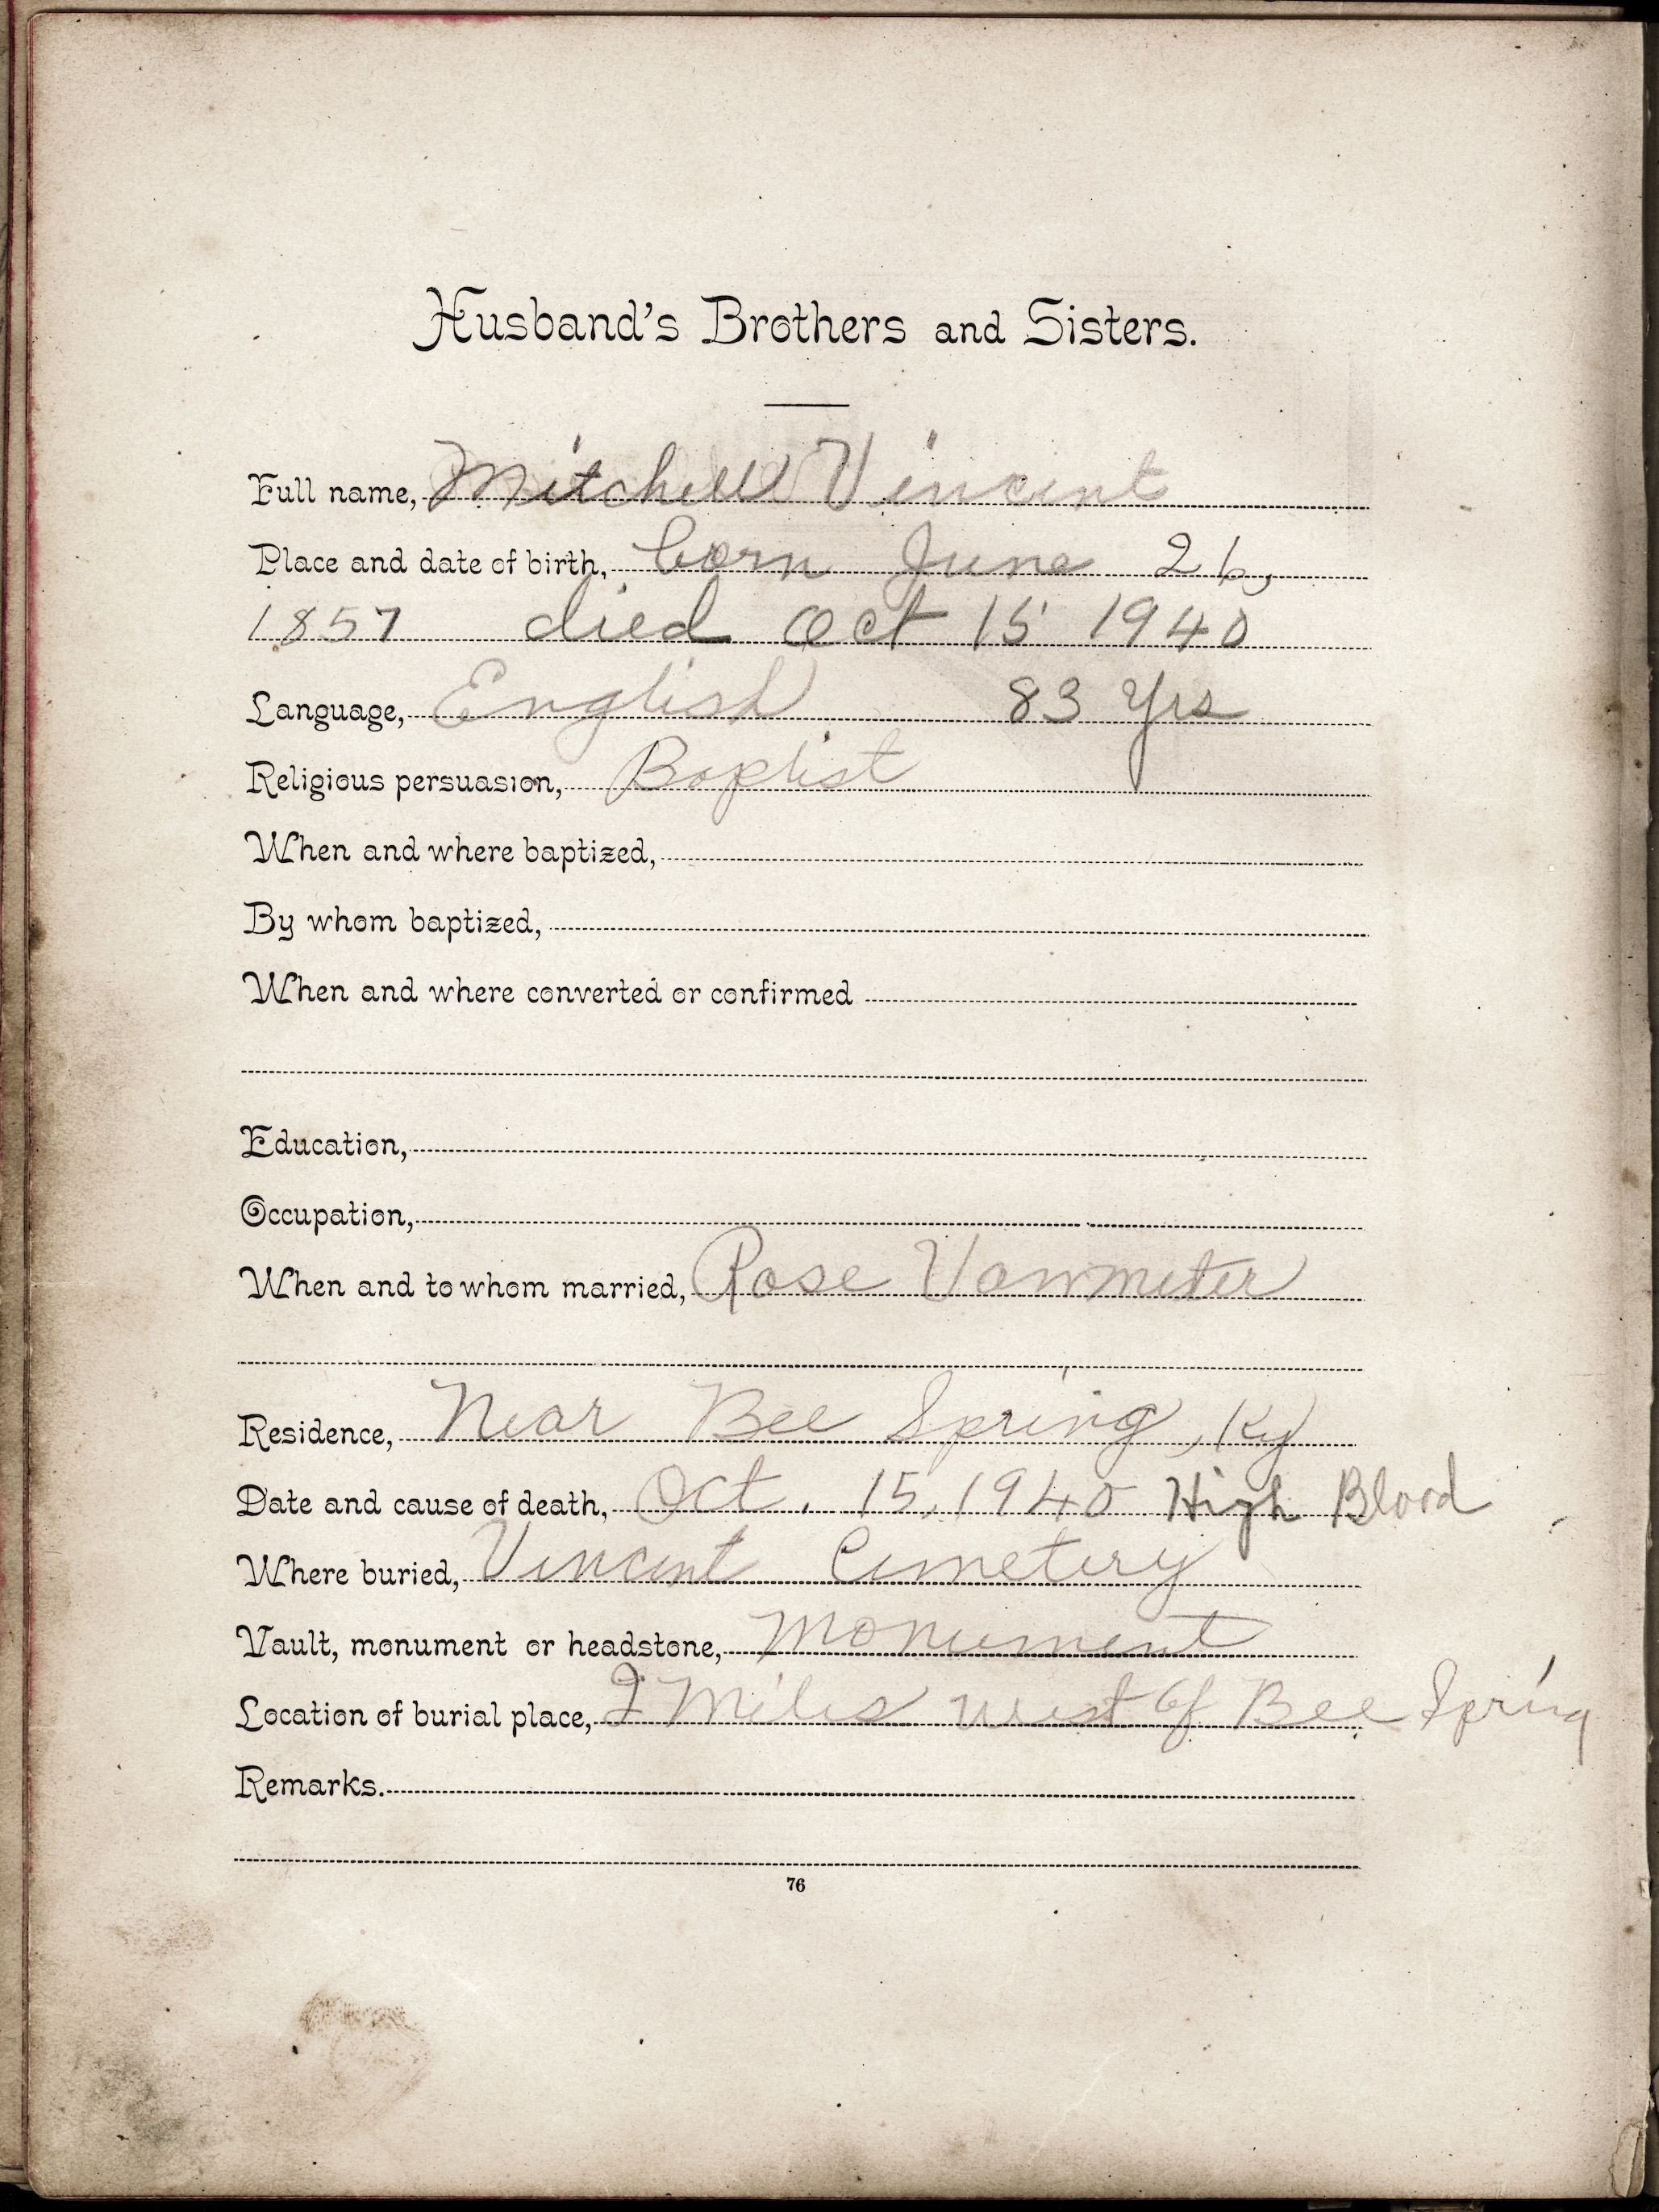 Husband's Brothers and Sisters.
Full name, Mitchell Vincent
Place and date of birth, born June 26,
1857 died Oct 15 1940
Language, English 83 Yrs
Religious persuasion, Baptist
When and where baptized,
By whom baptized,
When and where converted or confirmed
Education,
Occupation,
When and to whom married, Rose Vanmeter
Residence, Near Bee Spring, Ky
Date and cause of death, Oct. 15, 1940 High Blood
Where buried, Vincent Cemetery
Vault, monument or headstone, Monument
Location of burial place, 2 Miles west of Bee Spring
Remarks.
76